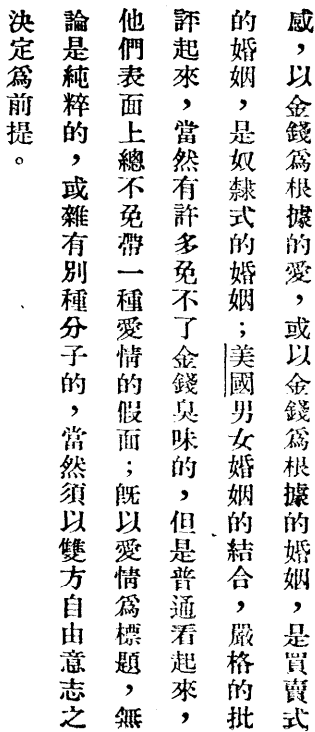 感，以金錢爲根據的愛，或以金錢爲根據的婚姻，是買賣式
的婚姻，是奴隸式的婚姻；美國男女婚姻的結合，嚴格的批
評起來，當然有許多免不了金錢臭味的，但是普通看起來，
他們表面上總不免帶一種愛情的假面；旣以愛情爲標題，無
論是純粹的，或雜有別種分子的，當然須以雙方自由意志之
決定爲前提。